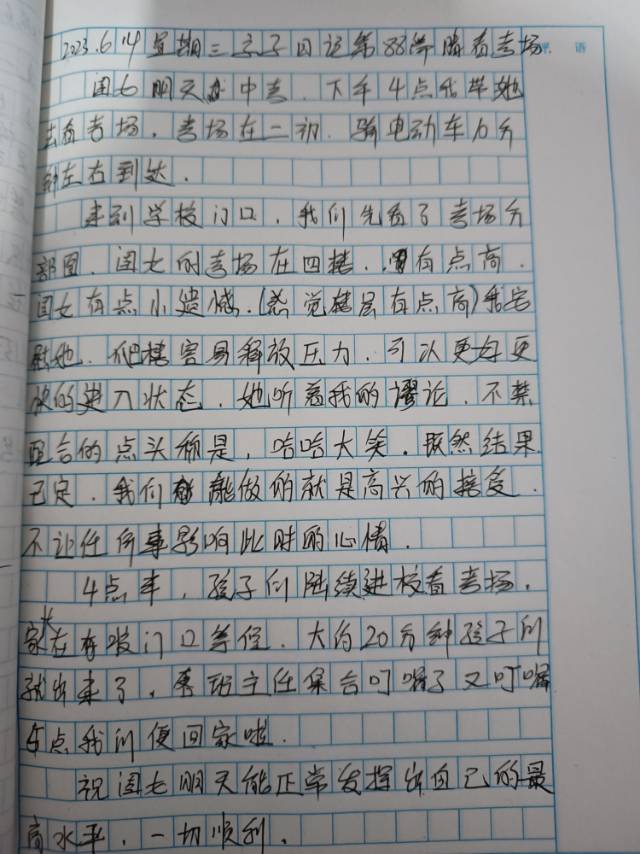 2023.6.14 星期三 亲子日记第88篇 陪看考场
评语
闺女明天中考．下午4点我带她
去看考场．考场在二初．骑电动车10分
钟左右到达．
来到学校门口．我们先看了考场分
部图．闺女的考场在四楼．有点高．
闺女有点小遗憾．(感觉楼层有点高)我安
慰她．爬楼容易释放压力．可以更好更
快的进入状态．她听着我的谬论．不禁
配合的点头称是，哈哈大笑．既然结果
已定．我们能做的就是高兴的接受．
不让任何事影响此时的心情．
4点半，孩子们陆续进校看考场．
家长在校门口等候．大约20分钟孩子们
就出来了．班主任集合叮嘱了又叮嘱
5点我们便回家啦．
祝闺女明天能正常发挥出自己的最
高水平．一切顺利．